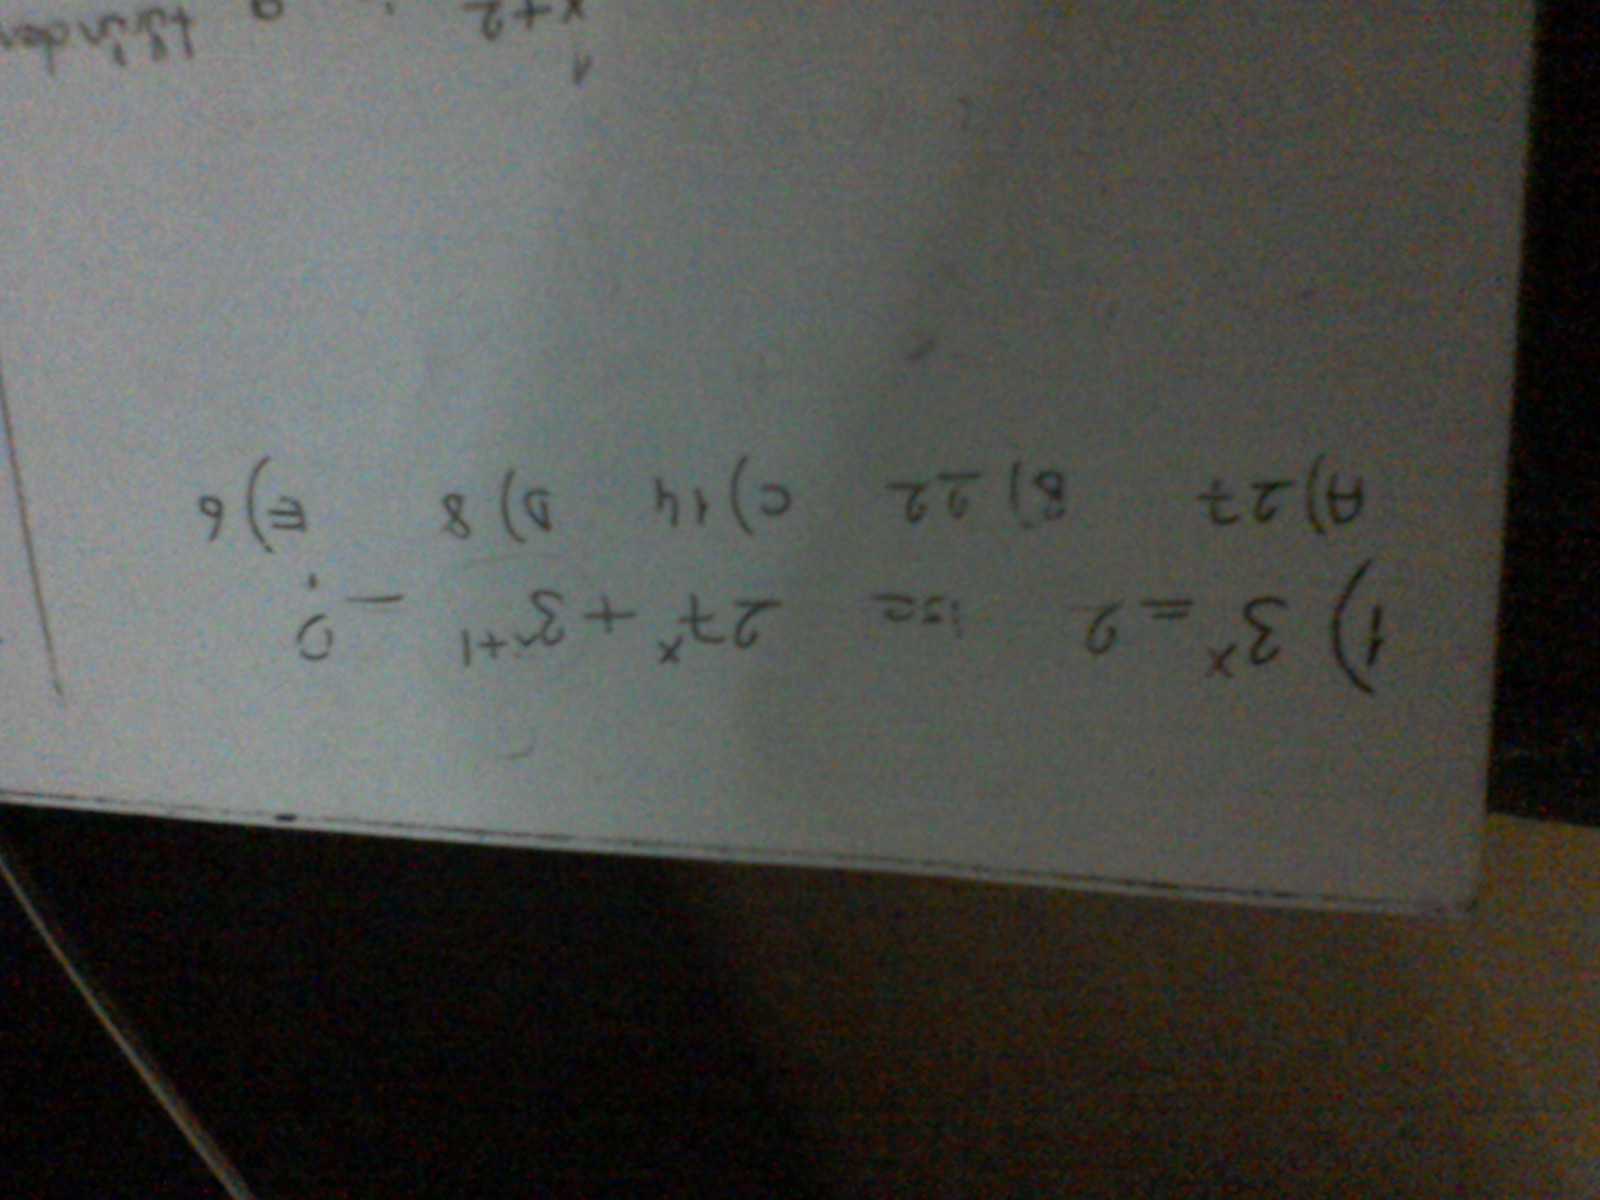 1) 3ˣ = 2 ise 27ˣ + 3ˣ⁺¹ = ?
A) 27 B) 22 C) 14 D) 8 E) 6
1
x+2 a türünden